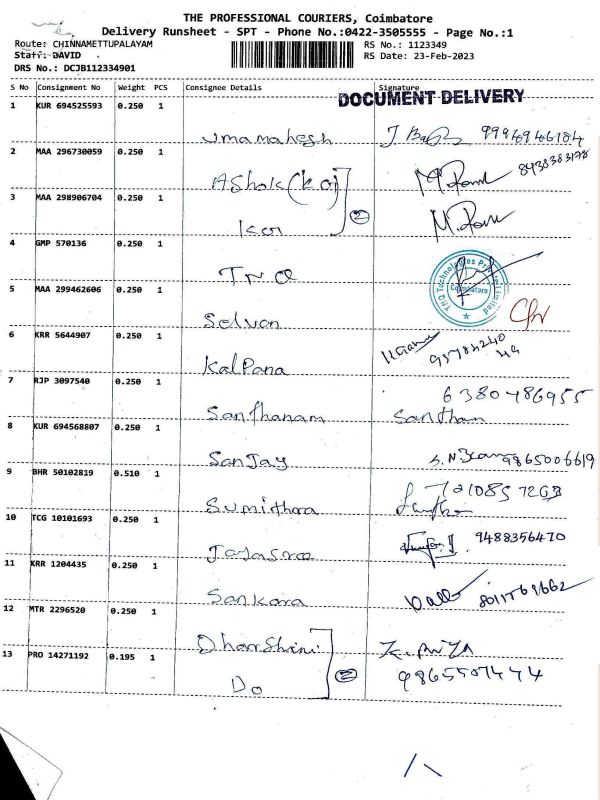 THE PROFESSIONAL COURIERS, Coimbatore
Delivery Runsheet - SPT - Phone No.:0422-3505555 - Page No.:1
Route: CHINNAMETTUPALAYAM
RS No.: 1123349
Staff: DAVID
RS Date: 23-Feb-2023
DRS No.: DCJB112334901
S No Consignment No Weight PCS Consignee Details Signature
DOCUMENT DELIVERY
1 KUR 694525593 0.250 1
Umamahesh
2 MAA 296730059 0.250 1
Ashok
3 MAA 298906704 0.250 1
2
4 GMP 570136 0.250 1
TNQ
TNQ Technologies Private Limited
Coimbatore
5 MAA 299462606 0.250 1
Selvan
6 KRR 5644907 0.250 1
Kalpana
7 RJP 3097540 0.250 1
6380786955
Santhanam Santham
8 KUR 694568807 0.250 1
Sanjay 9865006619
9 BHR 50102819 0.510 1
Sumithra
10 TCG 10101693 0.250 1
9488356470
Jayasree
11 KRR 1204435 0.250 1
Sankara
12 MTR 2296520 0.250 1
Dharshini
13 PRO 14271192 0.195 1
2
9865507474
Do